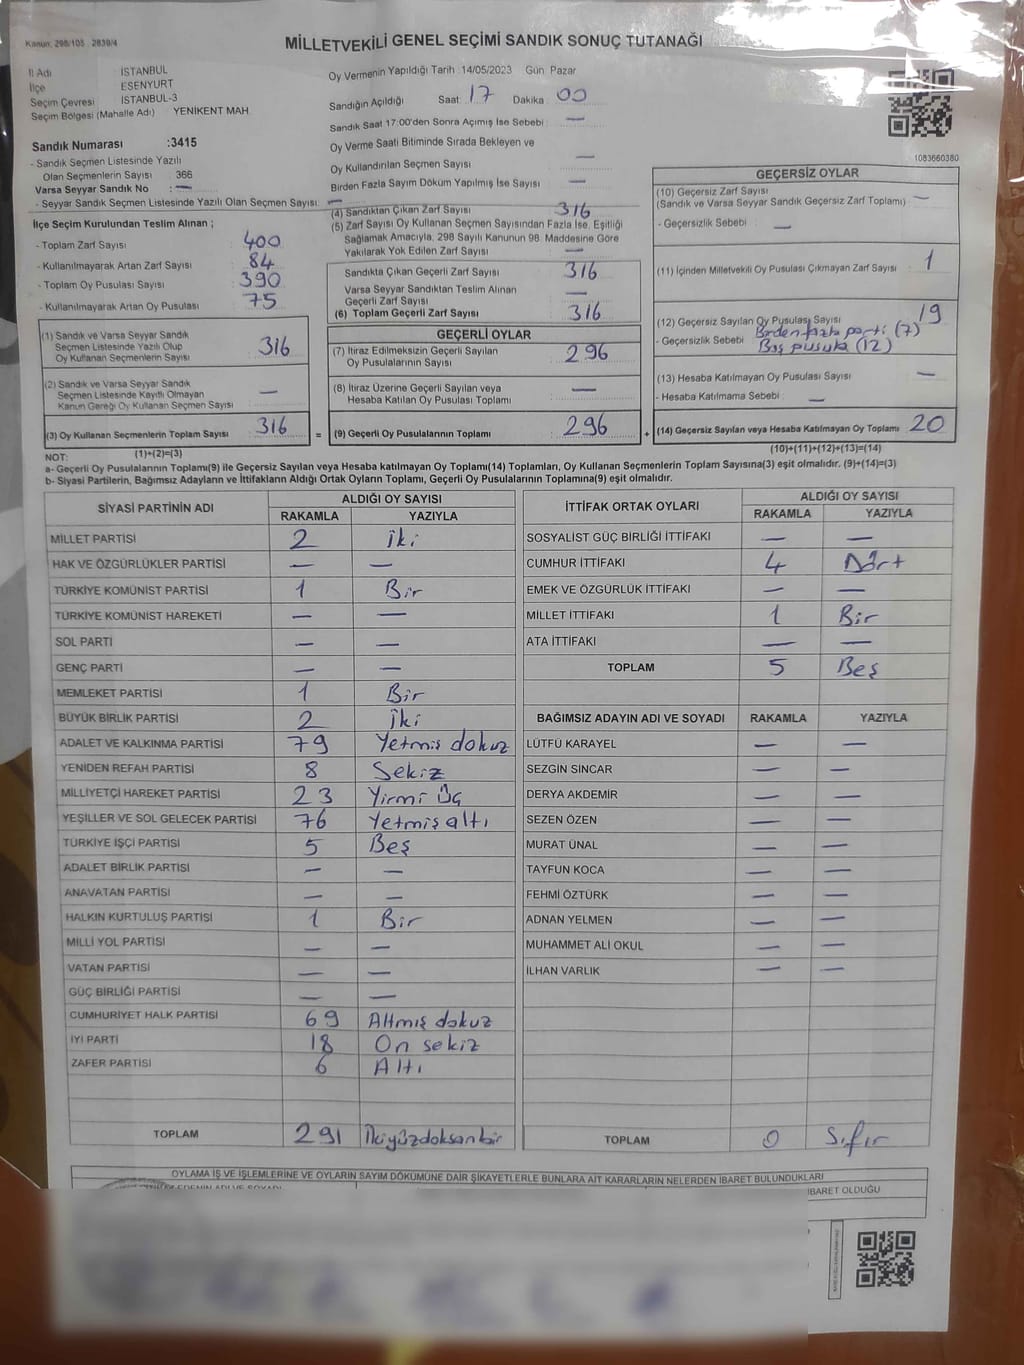 Kanun: 298/105 2839/4
MİLLETVEKİLİ GENEL SEÇİMİ SANDIK SONUÇ TUTANAĞI
İl Adı : İSTANBUL
İlçe : ESENYURT
Seçim Çevresi : İSTANBUL-3
Seçim Bölgesi (Mahalle Adı) YENİKENT MAH
Sandık Numarası :3415
- Sandık Seçmen Listesinde Yazılı
Olan Seçmenlerin Sayısı : 366
Varsa Seyyar Sandık No : —
- Seyyar Sandık Seçmen Listesinde Yazılı Olan Seçmen Sayısı: —
Oy Vermenin Yapıldığı Tarih :14/05/2023 Gün: Pazar
Sandığın Açıldığı Saat 17 Dakika 00
Sandık Saat 17:00'den Sonra Açımış İse Sebebi : —
Oy Verme Saati Bitiminde Sırada Bekleyen ve
Oy Kullandırılan Seçmen Sayısı —
Birden Fazla Sayım Döküm Yapılmış İse Sayısı —
1083660380
İlçe Seçim Kurulundan Teslim Alınan ;
- Toplam Zarf Sayısı 400
- Kullanılmayarak Artan Zarf Sayısı : 84
- Toplam Oy Pusulası Sayısı : 390
- Kullanılmayarak Artan Oy Pusulası : 75
(1) Sandık ve Varsa Seyyar Sandık
Seçmen Listesinde Yazılı Olup
Oy Kullanan Seçmenlerin Sayısı : 316
(2) Sandık ve Varsa Seyyar Sandık
Seçmen Listesinde Kayıtlı Olmayan
Kanun Gereği Oy Kullanan Seçmen Sayısı : —
(3) Oy Kullanan Seçmenlerin Toplam Sayısı : 316
(1)+(2)=(3)
(4) Sandıktan Çıkan Zarf Sayısı 316
(5) Zarf Sayısı Oy Kullanan Seçmen Sayısından Fazla İse, Eşitliği
Sağlamak Amacıyla, 298 Sayılı Kanunun 98. Maddesine Göre
Yakılarak Yok Edilen Zarf Sayısı : —
Sandıkta Çıkan Geçerli Zarf Sayısı : 316
Varsa Seyyar Sandıktan Teslim Alınan
Geçerli Zarf Sayısı : —
(6) Toplam Geçerli Zarf Sayısı : 316
GEÇERLİ OYLAR
(7) İtiraz Edilmeksizin Geçerli Sayılan
Oy Pusulalarının Sayısı : 296
(8) İtiraz Üzerine Geçerli Sayılan veya
Hesaba Katılan Oy Pusulası Toplamı : —
= (9) Geçerli Oy Pusulalarının Toplamı : 296
GEÇERSİZ OYLAR
(10) Geçersiz Zarf Sayısı
(Sandık ve Varsa Seyyar Sandık Geçersiz Zarf Toplamı) : —
- Geçersizlik Sebebi : —
(11) İçinden Milletvekili Oy Pusulası Çıkmayan Zarf Sayısı : 1
(12) Geçersiz Sayılan Oy Pusulası Sayısı : 19
- Geçersizlik Sebebi : Birden fazla parti (7)
Boş pusula (12)
(13) Hesaba Katılmayan Oy Pusulası Sayısı : —
- Hesaba Katılmama Sebebi : —
+ (14) Geçersiz Sayılan veya Hesaba Katılmayan Oy Toplamı : 20
(10)+(11)+(12)+(13)=(14)
NOT:
a- Geçerli Oy Pusulalarının Toplamı(9) ile Geçersiz Sayılan veya Hesaba katılmayan Oy Toplamı(14) Toplamları, Oy Kullanan Seçmenlerin Toplam Sayısına(3) eşit olmalıdır. (9)+(14)=(3)
b- Siyasi Partilerin, Bağımsız Adayların ve İttifakların Aldığı Ortak Oyların Toplamı, Geçerli Oy Pusulalarının Toplamına(9) eşit olmalıdır.
SİYASİ PARTİNİN ADI ALDIĞI OY SAYISI
RAKAMLA YAZIYLA
MİLLET PARTİSİ 2 İki
HAK VE ÖZGÜRLÜKLER PARTİSİ — —
TÜRKİYE KOMÜNİST PARTİSİ 1 Bir
TÜRKİYE KOMÜNİST HAREKETİ — —
SOL PARTİ — —
GENÇ PARTİ — —
MEMLEKET PARTİSİ 1 Bir
BÜYÜK BİRLİK PARTİSİ 2 İki
ADALET VE KALKINMA PARTİSİ 79 Yetmiş dokuz
YENİDEN REFAH PARTİSİ 8 Sekiz
MİLLİYETÇİ HAREKET PARTİSİ 23 Yirmi Üç
YEŞİLLER VE SOL GELECEK PARTİSİ 76 Yetmiş altı
TÜRKİYE İŞÇİ PARTİSİ 5 Beş
ADALET BİRLİK PARTİSİ — —
ANAVATAN PARTİSİ — —
HALKIN KURTULUŞ PARTİSİ 1 Bir
MİLLİ YOL PARTİSİ — —
VATAN PARTİSİ — —
GÜÇ BİRLİĞİ PARTİSİ — —
CUMHURİYET HALK PARTİSİ 69 Altmış dokuz
İYİ PARTİ 18 On sekiz
ZAFER PARTİSİ 6 Altı
TOPLAM 291 İkiyüzdoksanbir
İTTİFAK ORTAK OYLARI ALDIĞI OY SAYISI
RAKAMLA YAZIYLA
SOSYALİST GÜÇ BİRLİĞİ İTTİFAKI — —
CUMHUR İTTİFAKI 4 Dört
EMEK VE ÖZGÜRLÜK İTTİFAKI — —
MİLLET İTTİFAKI 1 Bir
ATA İTTİFAKI — —
TOPLAM 5 Beş
BAĞIMSIZ ADAYIN ADI VE SOYADI RAKAMLA YAZIYLA
LÜTFÜ KARAYEL — —
SEZGİN SİNCAR — —
DERYA AKDEMİR — —
SEZEN ÖZEN — —
MURAT ÜNAL — —
TAYFUN KOCA — —
FEHMİ ÖZTÜRK — —
ADNAN YELMEN — —
MUHAMMET ALİ OKUL — —
İLHAN VARLIK — —
TOPLAM 0 Sıfır
OYLAMA İŞ VE İŞLEMLERİNE VE OYLARIN SAYIM DÖKÜMÜNE DAİR ŞİKAYETLERLE BUNLARA AİT KARARLARIN NELERDEN İBARET BULUNDUKLARI
İBARET OLDUĞU